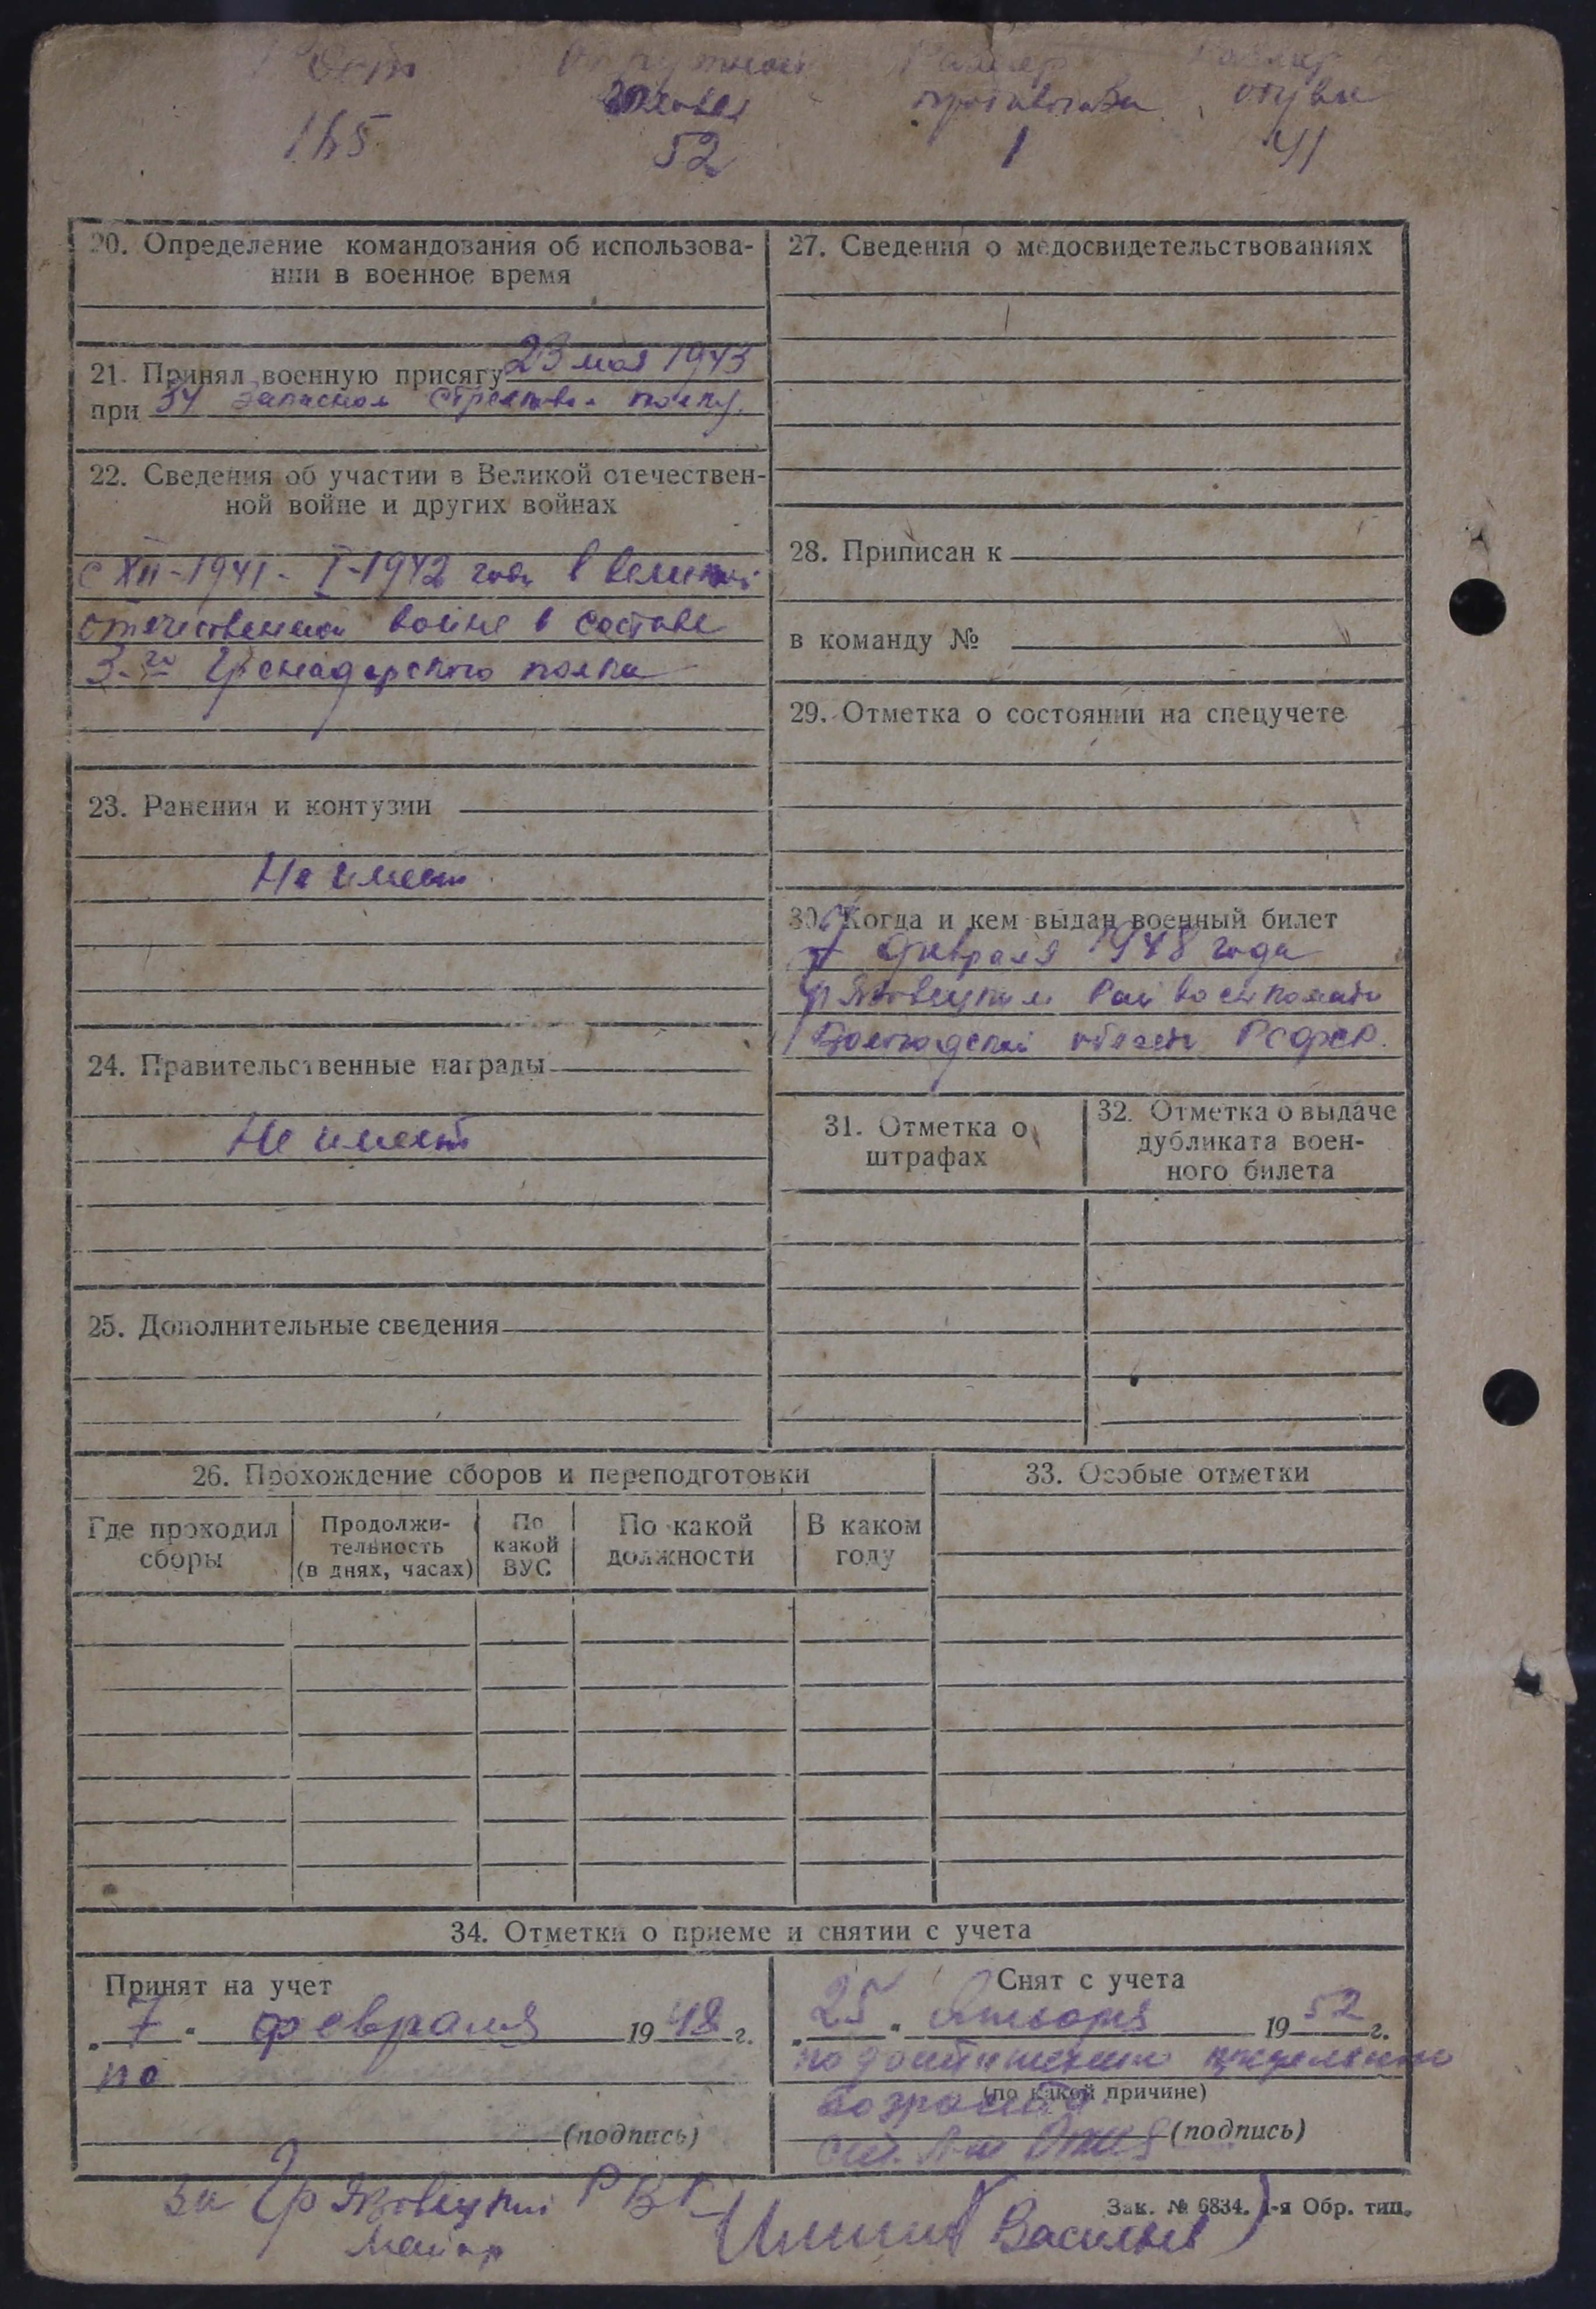 Рост Окружной Размер Размер
головы противогаза обуви
165 52 1 41
20. Определение командования об использова-
нии в военное время
21. Принял военную присягу 23 мая 1943
при 34 запасном стрелковом полку.
22. Сведения об участии в Великой отечествен-
ной войне и других войнах
с XII-1941 - I-1942 года в великой
отечественной войне в составе
3-го Гренадерского полка
23. Ранения и контузии
Не имеет
24. Правительственные награды
Не имеет
25. Дополнительные сведения
27. Сведения о медосвидетельствованиях
28. Приписан к
в команду №
29. Отметка о состоянии на спецучете
30. Когда и кем выдан военный билет
7 февраля 1948 года
Грязовецким Райвоенкоматом
Вологодской области РСФСР.
31. Отметка о
штрафах
32. Отметка о выдаче
дубликата воен-
ного билета
26. Прохождение сборов и переподготовки
Где проходил
сборы
Продолжи-
тельность
(в днях, часах)
По
какой
ВУС
По какой
должности
В каком
году
33. Особые отметки
34. Отметки о приеме и снятии с учета
Принят на учет
"7" февраля 1948 г.
по
(подпись)
Снят с учета
"25" 1952 г.
по достижению предельного
(по какой причине)
возраста
(подпись)
Грязовецкий РВК
Майор (Васильев)
Зак. № 6834. 1-я Обр. тип.